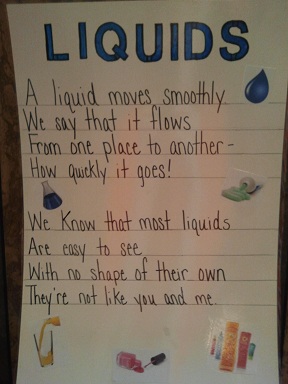 LIQUIDS
A liquid moves smoothly
We say that it flows
From one place to another-
How quickly it goes!
We Know that most liquids
Are easy to see
With no shape of their own
They're not like you and me.